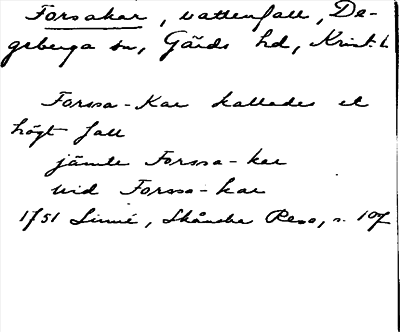 Forsakar, vattenfall, De-
geberga sn, Gärds hd, Krist. l.
Forssa-Kar kallades et
högt fall
jämte Forssa-kar
vid Forssa-kar
1751 Linné, Skånska Resa, s. 107